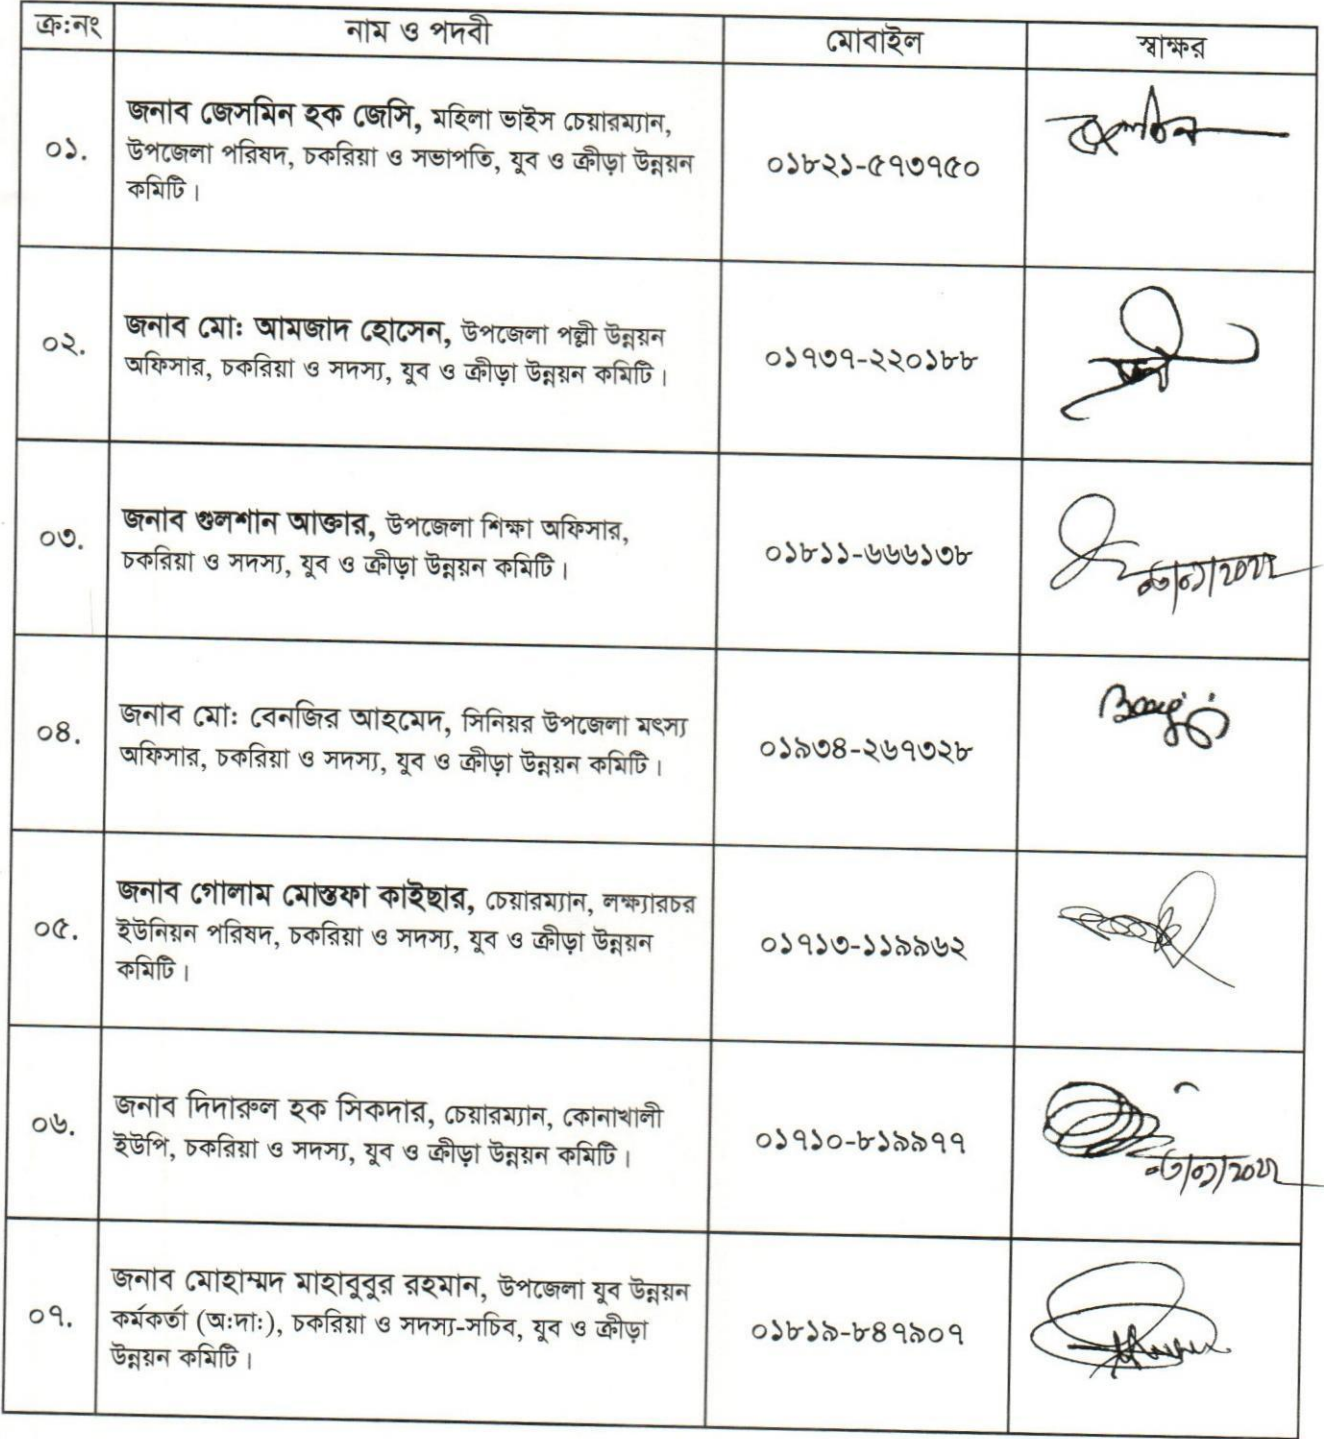 ক্র:নং নাম ও পদবী মোবাইল স্বাক্ষর
০১. জনাব জেসমিন হক জেসি, মহিলা ভাইস চেয়ারম্যান,
উপজেলা পরিষদ, চকরিয়া ও সভাপতি, যুব ও ক্রীড়া উন্নয়ন
কমিটি।
০১৮২১-৫৭৩৭৫০
০২. জনাব মো: আমজাদ হোসেন, উপজেলা পল্লী উন্নয়ন
অফিসার, চকরিয়া ও সদস্য, যুব ও ক্রীড়া উন্নয়ন কমিটি।
০১৭৩৭-২২০১৮৮
০৩. জনাব গুলশান আক্তার, উপজেলা শিক্ষা অফিসার,
চকরিয়া ও সদস্য, যুব ও ক্রীড়া উন্নয়ন কমিটি।
০১৮১১-৬৬৬১৩৮
০৪. জনাব মো: বেনজির আহমেদ, সিনিয়র উপজেলা মৎস্য
অফিসার, চকরিয়া ও সদস্য, যুব ও ক্রীড়া উন্নয়ন কমিটি।
০১৯৩৪-২৬৭৩২৮
০৫. জনাব গোলাম মোস্তফা কাইছার, চেয়ারম্যান, লক্ষ্যারচর
ইউনিয়ন পরিষদ, চকরিয়া ও সদস্য, যুব ও ক্রীড়া উন্নয়ন
কমিটি।
০১৭১৩-১১৯৯৬২
০৬. জনাব দিদারুল হক সিকদার, চেয়ারম্যান, কোনাখালী
ইউপি, চকরিয়া ও সদস্য, যুব ও ক্রীড়া উন্নয়ন কমিটি।
০১৭১০-৮১৯৯৭৭
০৭. জনাব মোহাম্মদ মাহাবুবুর রহমান, উপজেলা যুব উন্নয়ন
কর্মকর্তা (অ:দা:), চকরিয়া ও সদস্য-সচিব, যুব ও ক্রীড়া
উন্নয়ন কমিটি।
০১৮১৯-৮৪৭৯০৭